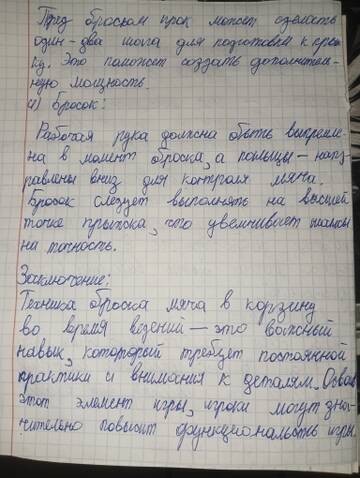 Перед броском игрок может сделать
один-два шага для подготовки к прыж
ку. Это поможет создать дополнитель-
ную мощность.
4) Бросок:
Рабочая рука должна быть выпрямле
на в момент броска, а пальцы - напр
равлены вниз для контроля мяча.
Бросок следует выполнять на высшей
точке прыжка, что увеличивает шансы
на точность.
Заключение:
Техника броска мяча в корзину
во время ведений - это важный
навык, который требует постоянной
практики и внимания к деталям. Освая
этот элемент игры, игроки могут зна-
чительно повысит функциональсть игры